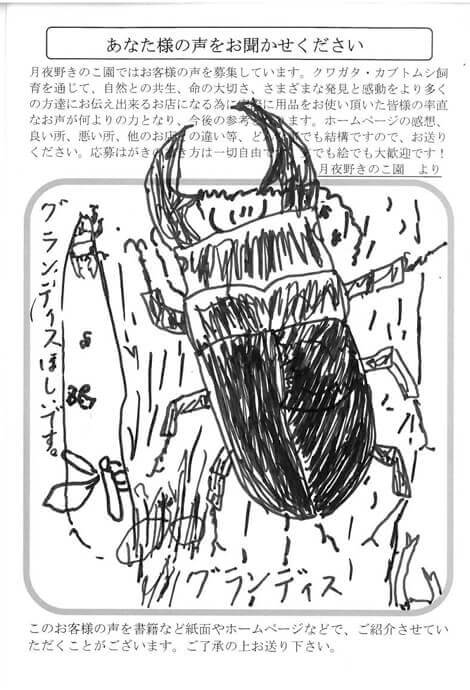 あなた様の声をお聞かせください
月夜野きのこ園ではお客様の声を募集しています。クワガタ・カブトムシ飼
育を通じて、自然との共生、命の大切さ、さまざまな発見と感動をより多く
の方達にお伝え出来るお店になる為に 用品をお使い頂いた皆様の率直
なお声が何よりの力となり、今後の参考 ります。ホームページの感想、
良い所、悪い所、他のお店 の違い等、 でも結構ですので、お送り
ください。応募はがき き方は一切自由で でも絵でも大歓迎です！
月夜野きのこ園　より
グランディスほしいです。
グランディス
このお客様の声を書籍など紙面やホームページなどで、ご紹介させてい
ただくことがございます。ご了承の上お送り下さい。